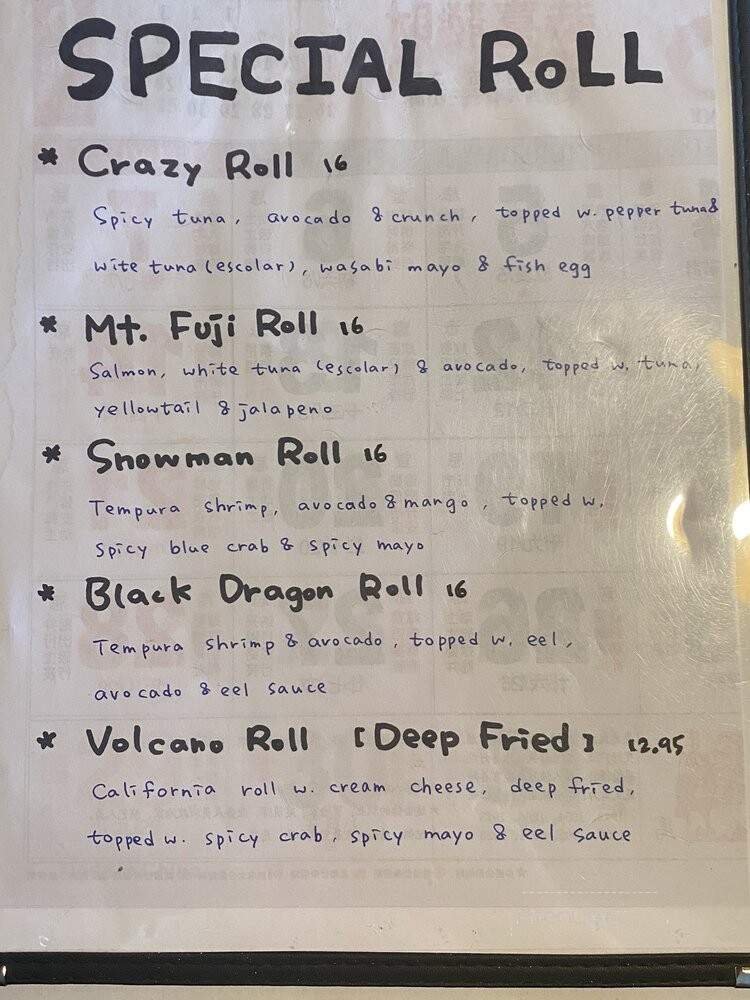 SPECIAL ROLL
* Crazy Roll 16
Spicy tuna, avocado & crunch, topped w. pepper tuna &
wite tuna (escolar), wasabi mayo & fish egg
* Mt. Fuji Roll 16
Salmon, white tuna (escolar) & avocado, topped w. tuna,
yellowtail & jalapeno
* Snowman Roll 16
Tempura shrimp, avocado & mango, topped w.
spicy blue crab & spicy mayo
* Black Dragon Roll 16
Tempura shrimp & avocado, topped w. eel,
avocado & eel sauce
* Volcano Roll [Deep Fried] 12.95
California roll w. cream cheese, deep fried,
topped w. spicy crab, spicy mayo & eel sauce